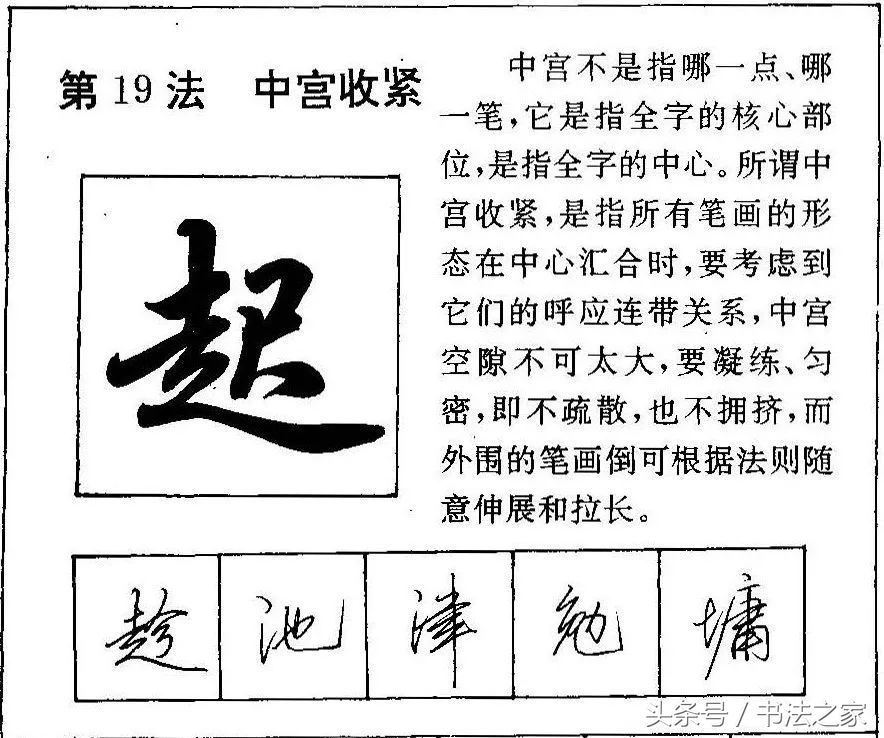 第19法 中宫收紧
中宫不是指哪一点、哪
一笔,它是指全字的核心部
位,是指全字的中心。所谓中
宫收紧,是指所有笔画的形
态在中心汇合时,要考虑到
它们的呼应连带关系,中宫
空隙不可太大,要凝练、匀
密,即不疏散,也不拥挤,而
外围的笔画倒可根据法则随
意伸展和拉长。
起
趁 池 津 勉 墉
头条号/书法之家